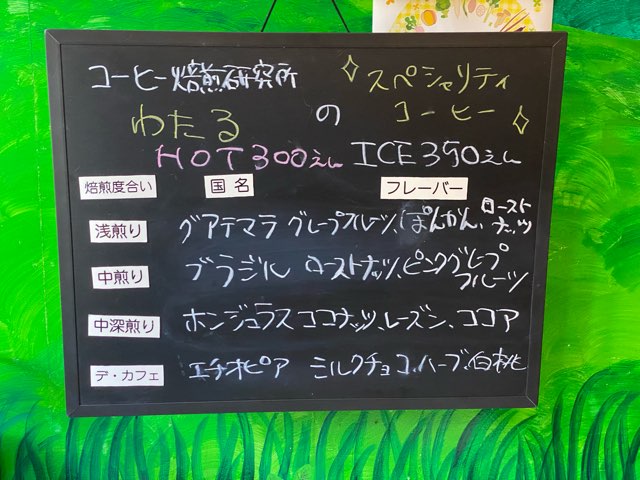 コーヒー焙煎研究所
わたる の スペシャリティ コーヒー
HOT300えん ICE350えん
焙煎度合い 国名 フレーバー
浅煎り グアテマラ グレープフルーツ、ぽんかん、ローストナッツ
中煎り ブラジル ローストナッツ、ピンクグレープフルーツ
中深煎り ホンジュラス ココナッツ、レーズン、ココア
デ・カフェ エチオピア ミルクチョコ、ハーブ、白桃